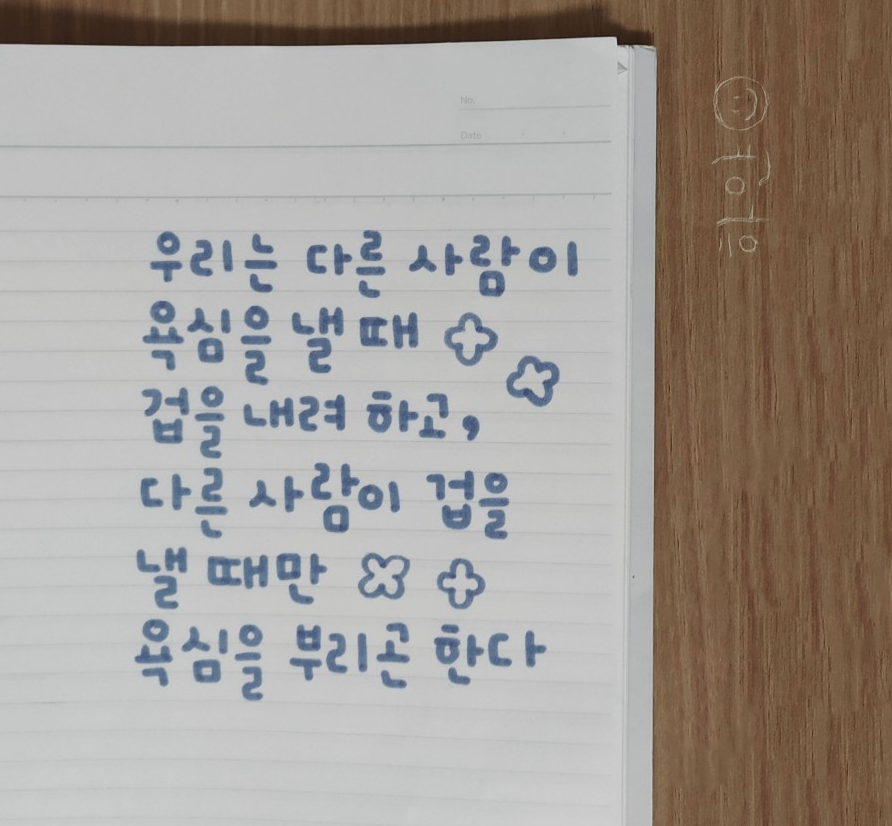 No.
Date
우리는 다른 사람이
욕심을 낼 때
겁을 내려 하고,
다른 사람이 겁을
낼 때만
욕심을 부리곤 한다